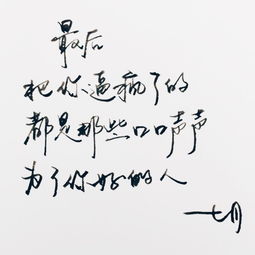 最后
把你逼疯了的
都是那些口口声声
为了你好的人
一七月